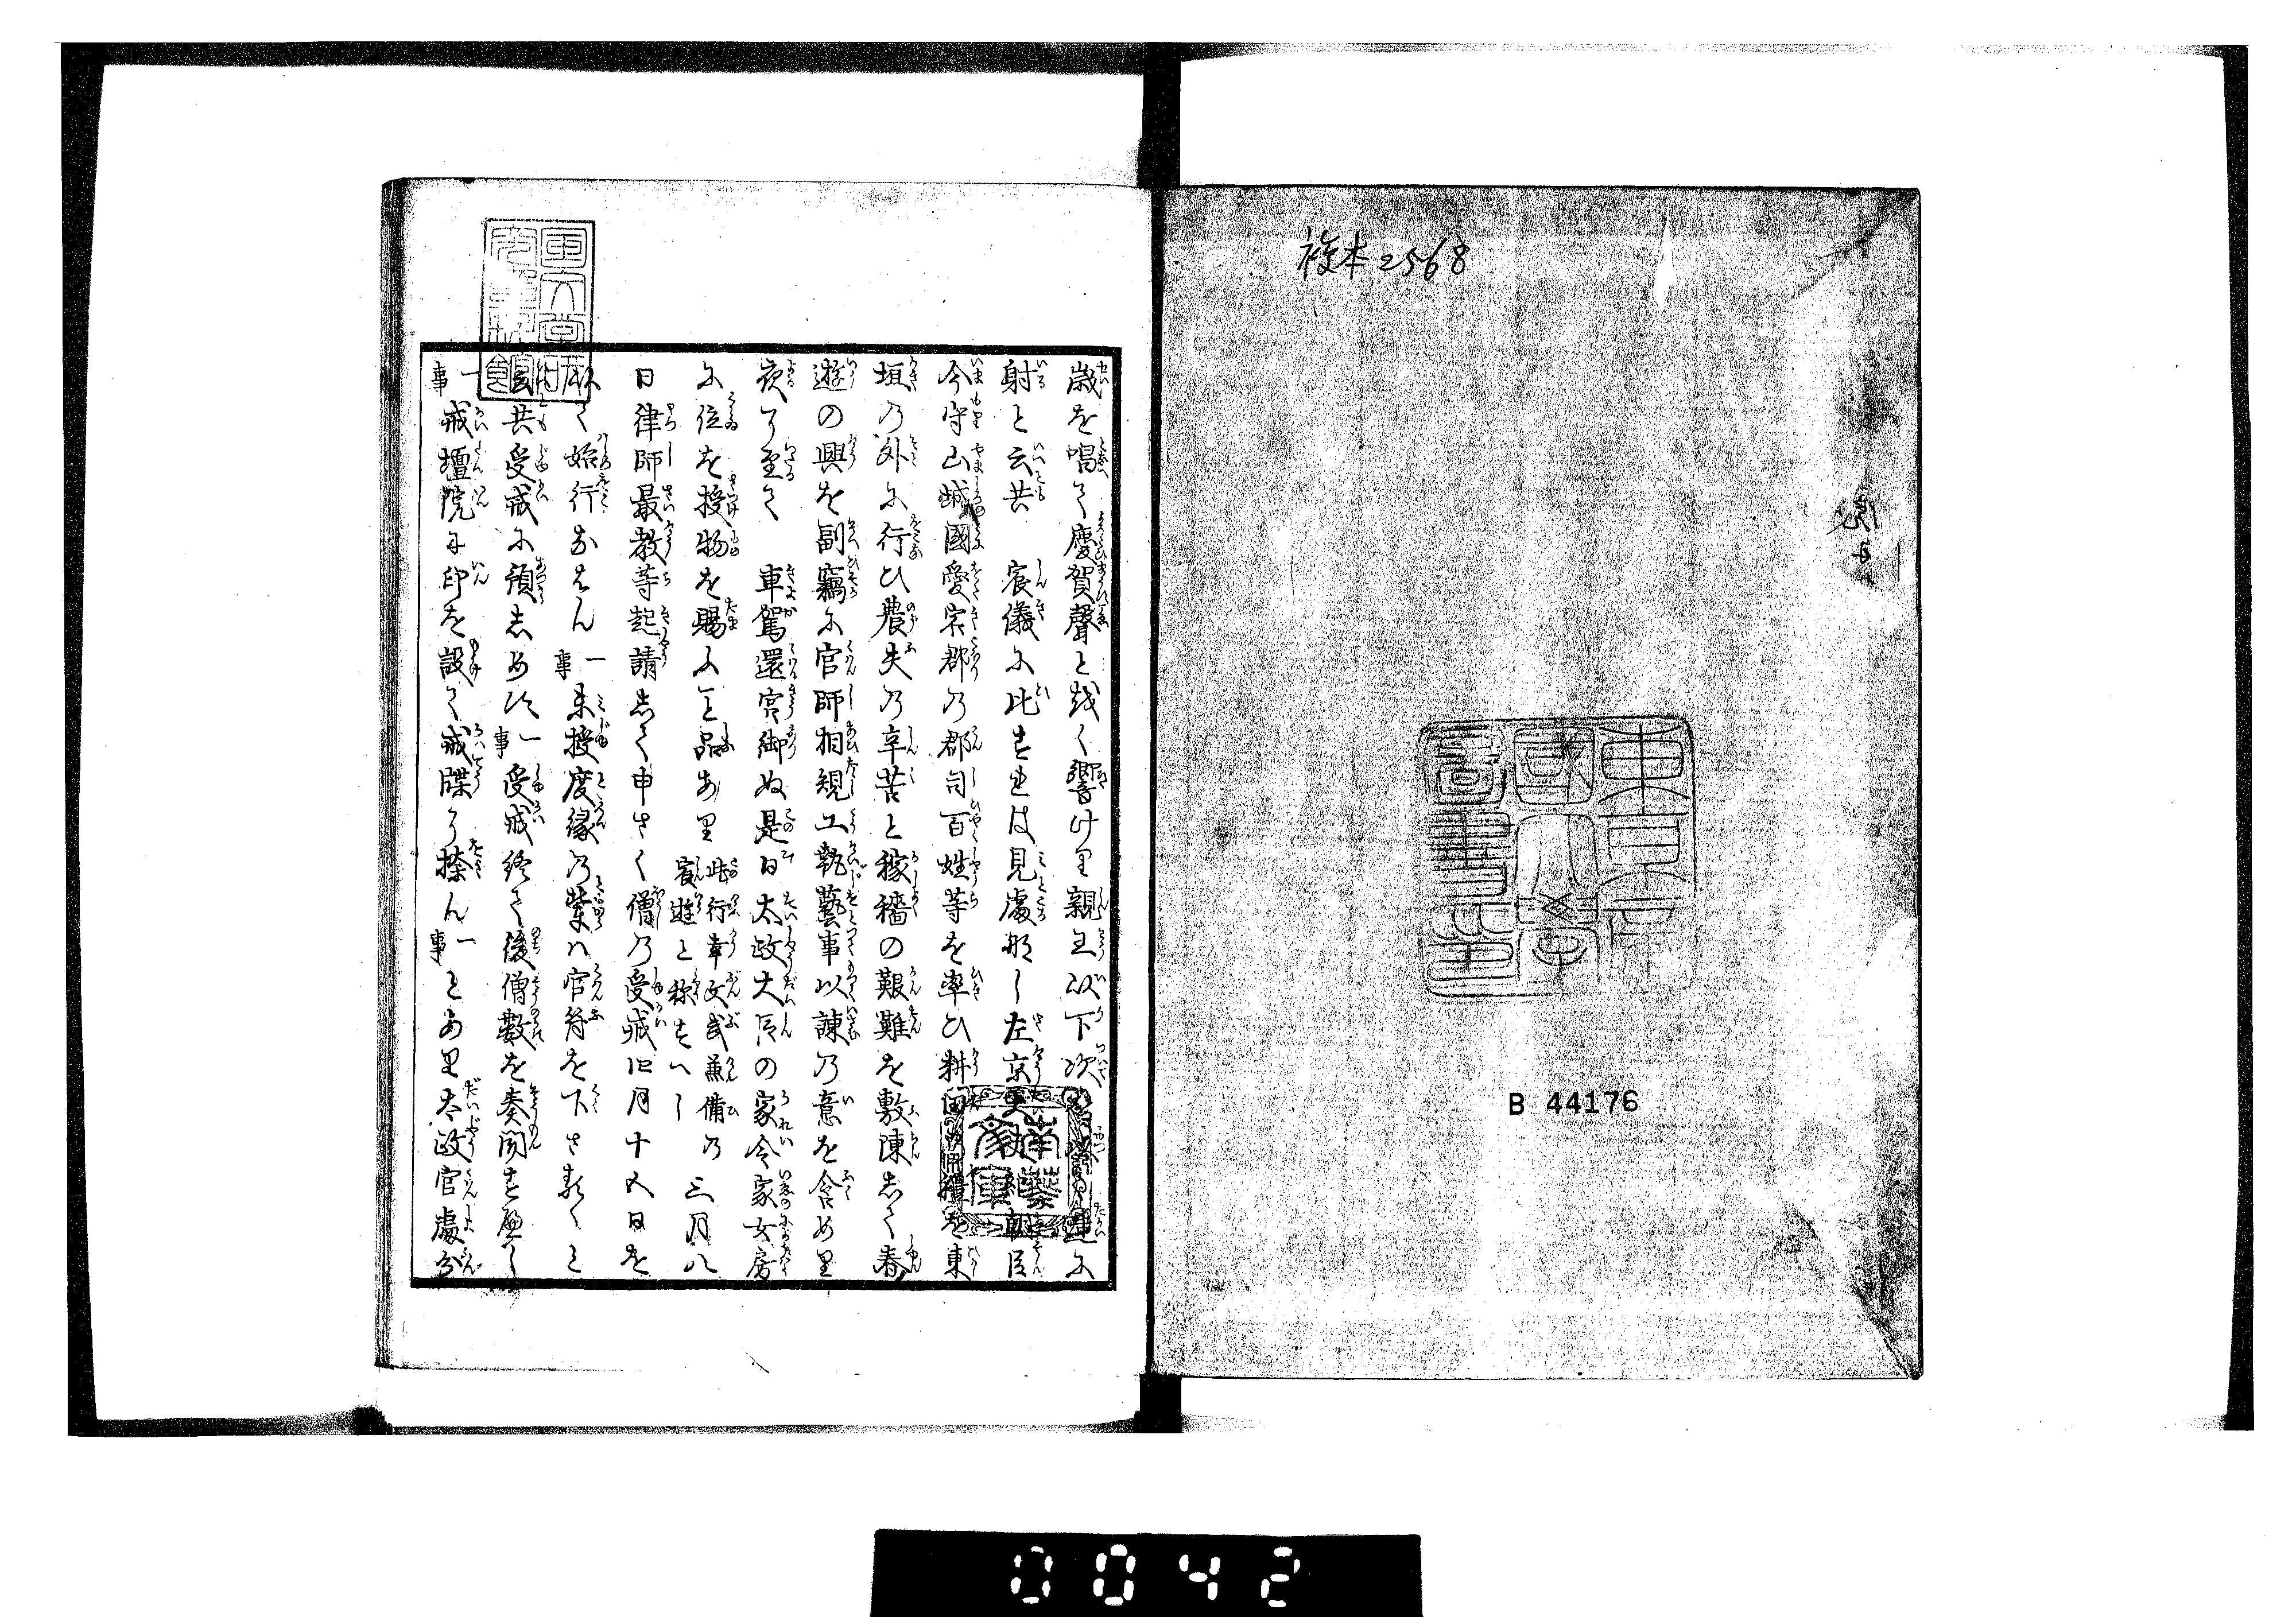 複本2568
東京帝
國大學
圖書印
B 44176
歳を唱へて慶賀聲と越く響けり親王以下次
射と云共 宸儀に比すれは見處那し左京
今守山城國愛宕郡の郡司百姓等を率ひ耕田
垣の外に行ひ農夫の辛苦と稼穡の艱難を敷陳志て春
遊の興を副竊に官師相規工執藝事以諫の意を含めり
夜に至て 車駕還宮御ぬ是日太政大臣の家令家女房
に位を授物を賜ふこと品あり此行幸文武兼備の宸遊と称すへし三月八
日律師最教等起請志て申さく僧の受戒四月十五日を
て始行なはん一事未授度縁の輩は官符を下さるゝこと
共受戒に預志めす一事受戒終て後僧數を奏聞す可し
一事戒壇院に印を設て戒牒に捺ん一事とあり太政官處分
南葵
文庫
0042